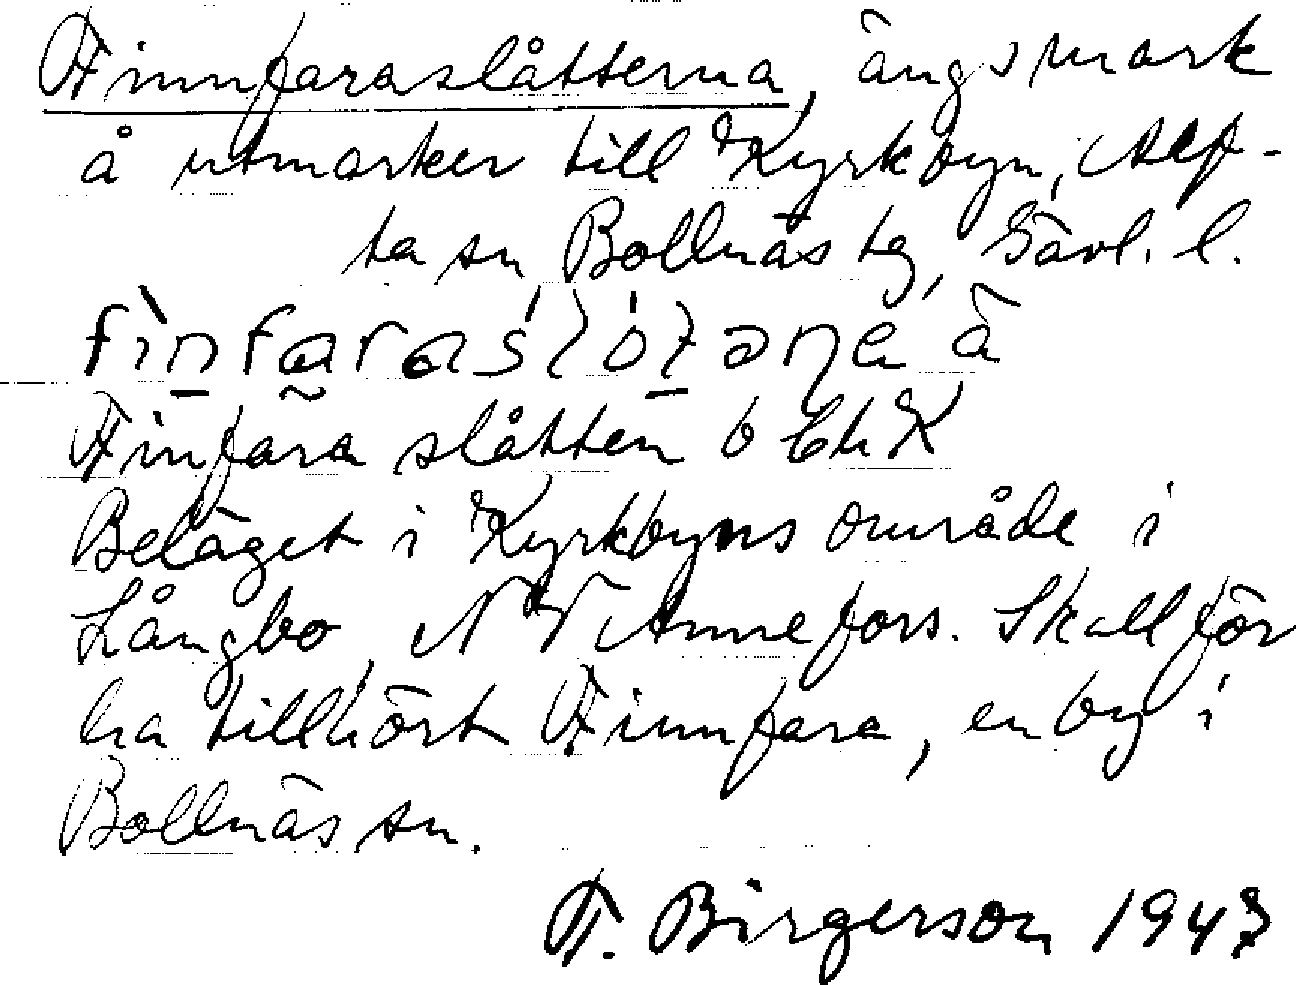 Finnfaraslåtterna, ängsmark
å utmarken till Kyrkbyn, Alf-
ta sn Bollnäs tg, Gävl. l.
Finfara slåtten 6 Ek K
Beläget i Kyrkbyns område i
Långbo, NV Annefors. Skall för
ha tillhört Finnfara, en by i
Bollnäs sn.
F. Birgerson 1947